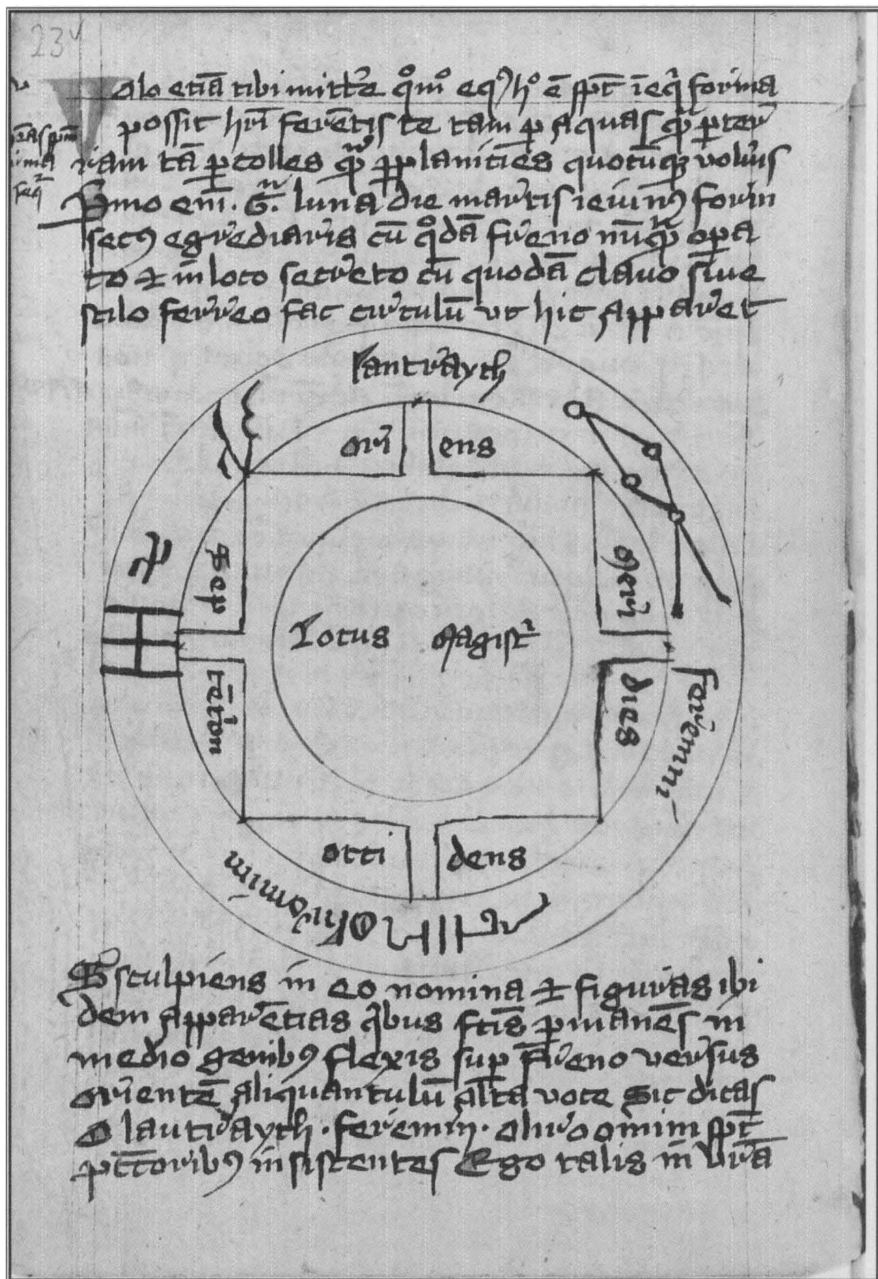 23v
Volo etiā tibi mitt'e q̊m̊ eq⁹ h° ē sp̄t īeq̄ forma
possit hr̄i ferētis te tam p aquas q̄ p ter
ram tā p colles q̄ p planicies quotūq̨ volu'is
Pmo em̄ . G . luna die martis ieiun⁹ forin
sec⁹ egrediaris cū q̊dā freno nūq̄ opa
to & in loco secreto cū quodā clavo sive
stilo ferreo fac circulū ut hic apparet
lautrayth
ori ens
Sep
Meri
Locus Magistr̄
tētrion
dies
feremni
occi dens
Oliromim
Sculpiens in eo nomina & figuras ibi
dem apparētias q̄bus fc̄is p̄manēs in
medio genib⁹ flexis sup freno versus
orientē aliquantulū alta voce sic dicas
O lautrayth . feremin . oliroomim sp̄t
pc̄c̄orib⁹ insistentes Ego talis in vr̄a